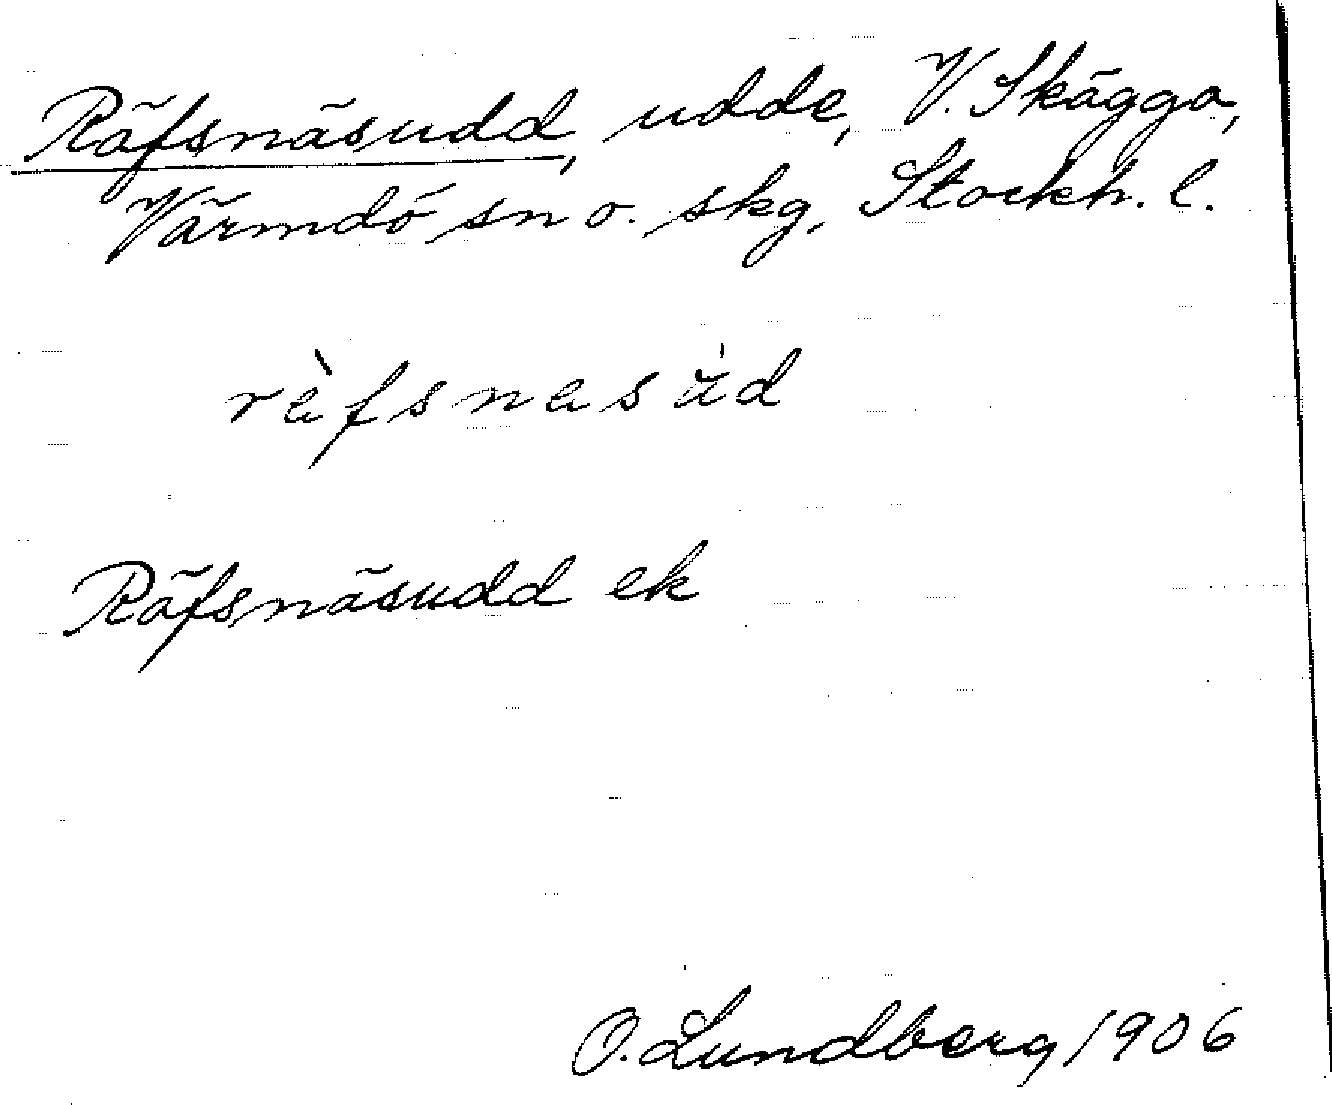 Räfsnäsudd, udde, V. Skägga,
Värmdö sn o. skg, Stockh. l.
rèfsnesùd
Räfsnäsudd ek
O. Lundberg 1906